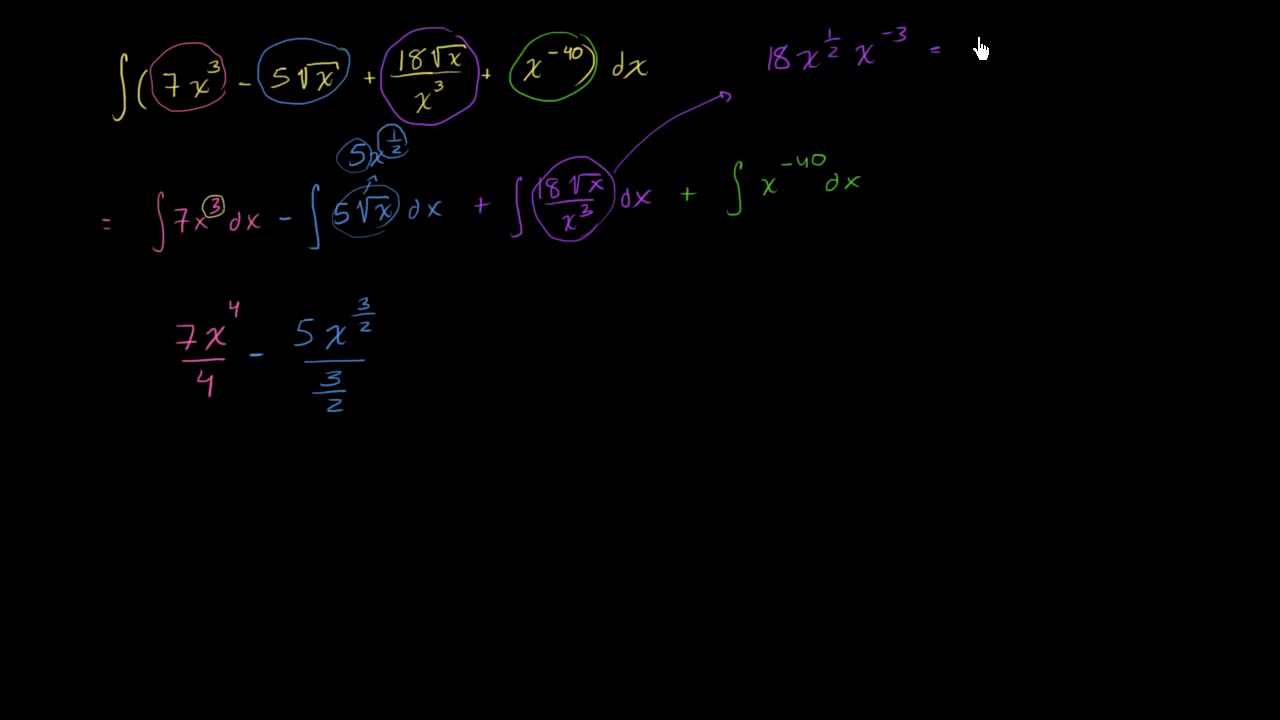 ∫(7x³ - 5√x + 18√x/x³ + x⁻⁴⁰) dx
18x^(1/2) x⁻³ =
5x^(1/2)
= ∫7x³dx - ∫5√x dx + ∫18√x/x³ dx + ∫x⁻⁴⁰dx
7x⁴/4 - 5x^(3/2)/(3/2)